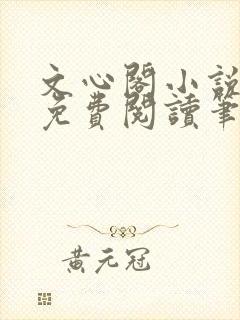 文心閣小說
免費閱讀筆
黃元冠